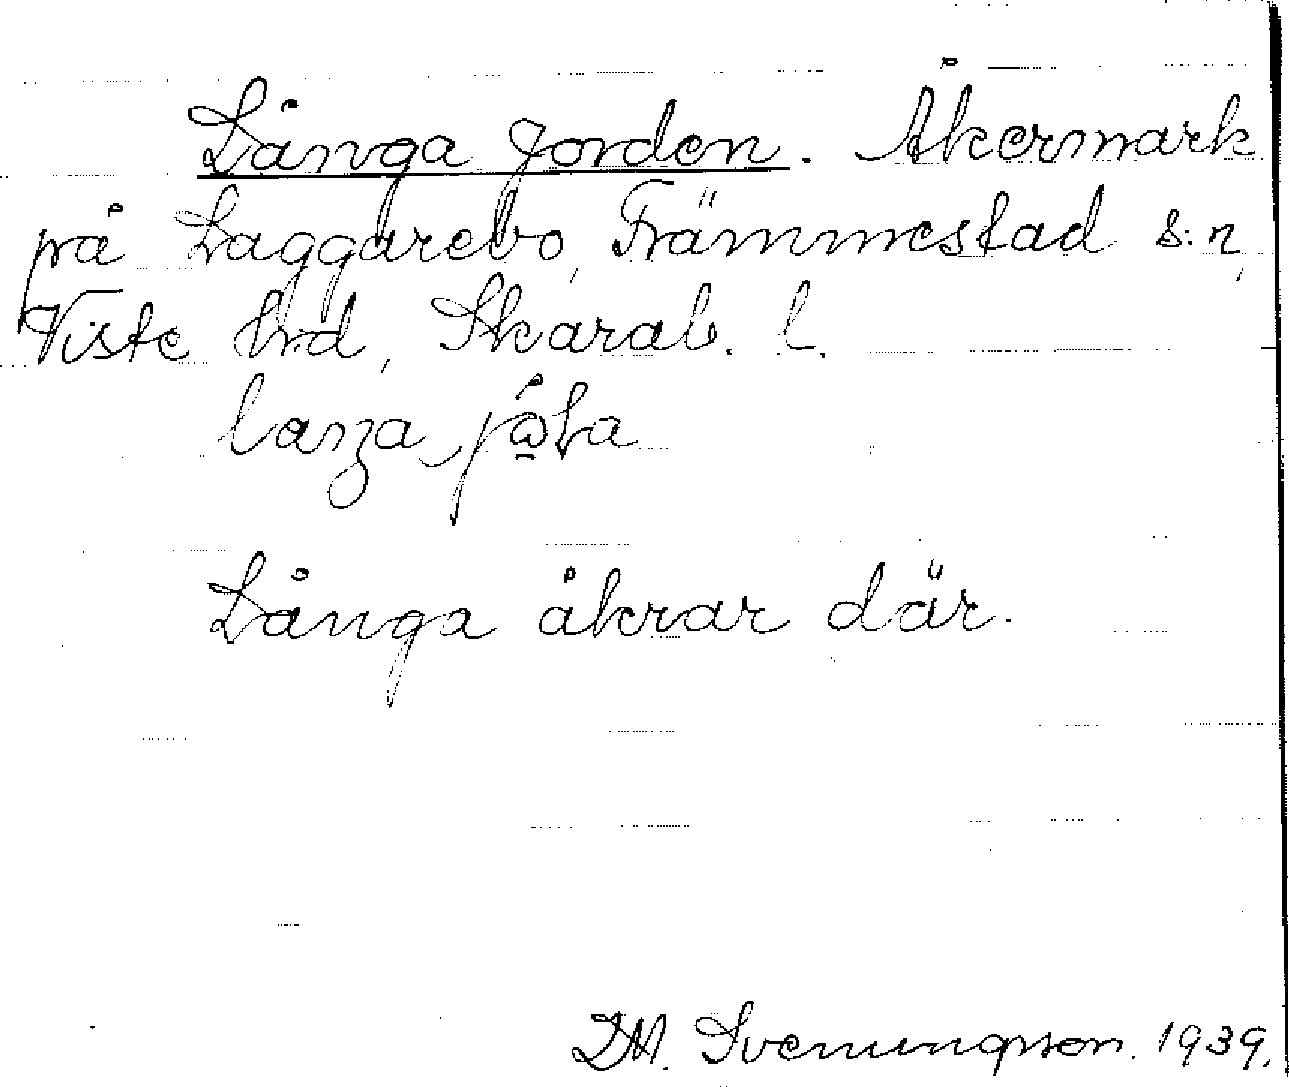 Långa Jorden. Åkermark
på Laggarebo, Främmestad s:n,
Viste hrd, Skarab. l.
Långa åkrar där.
Svenungsson. 1939.